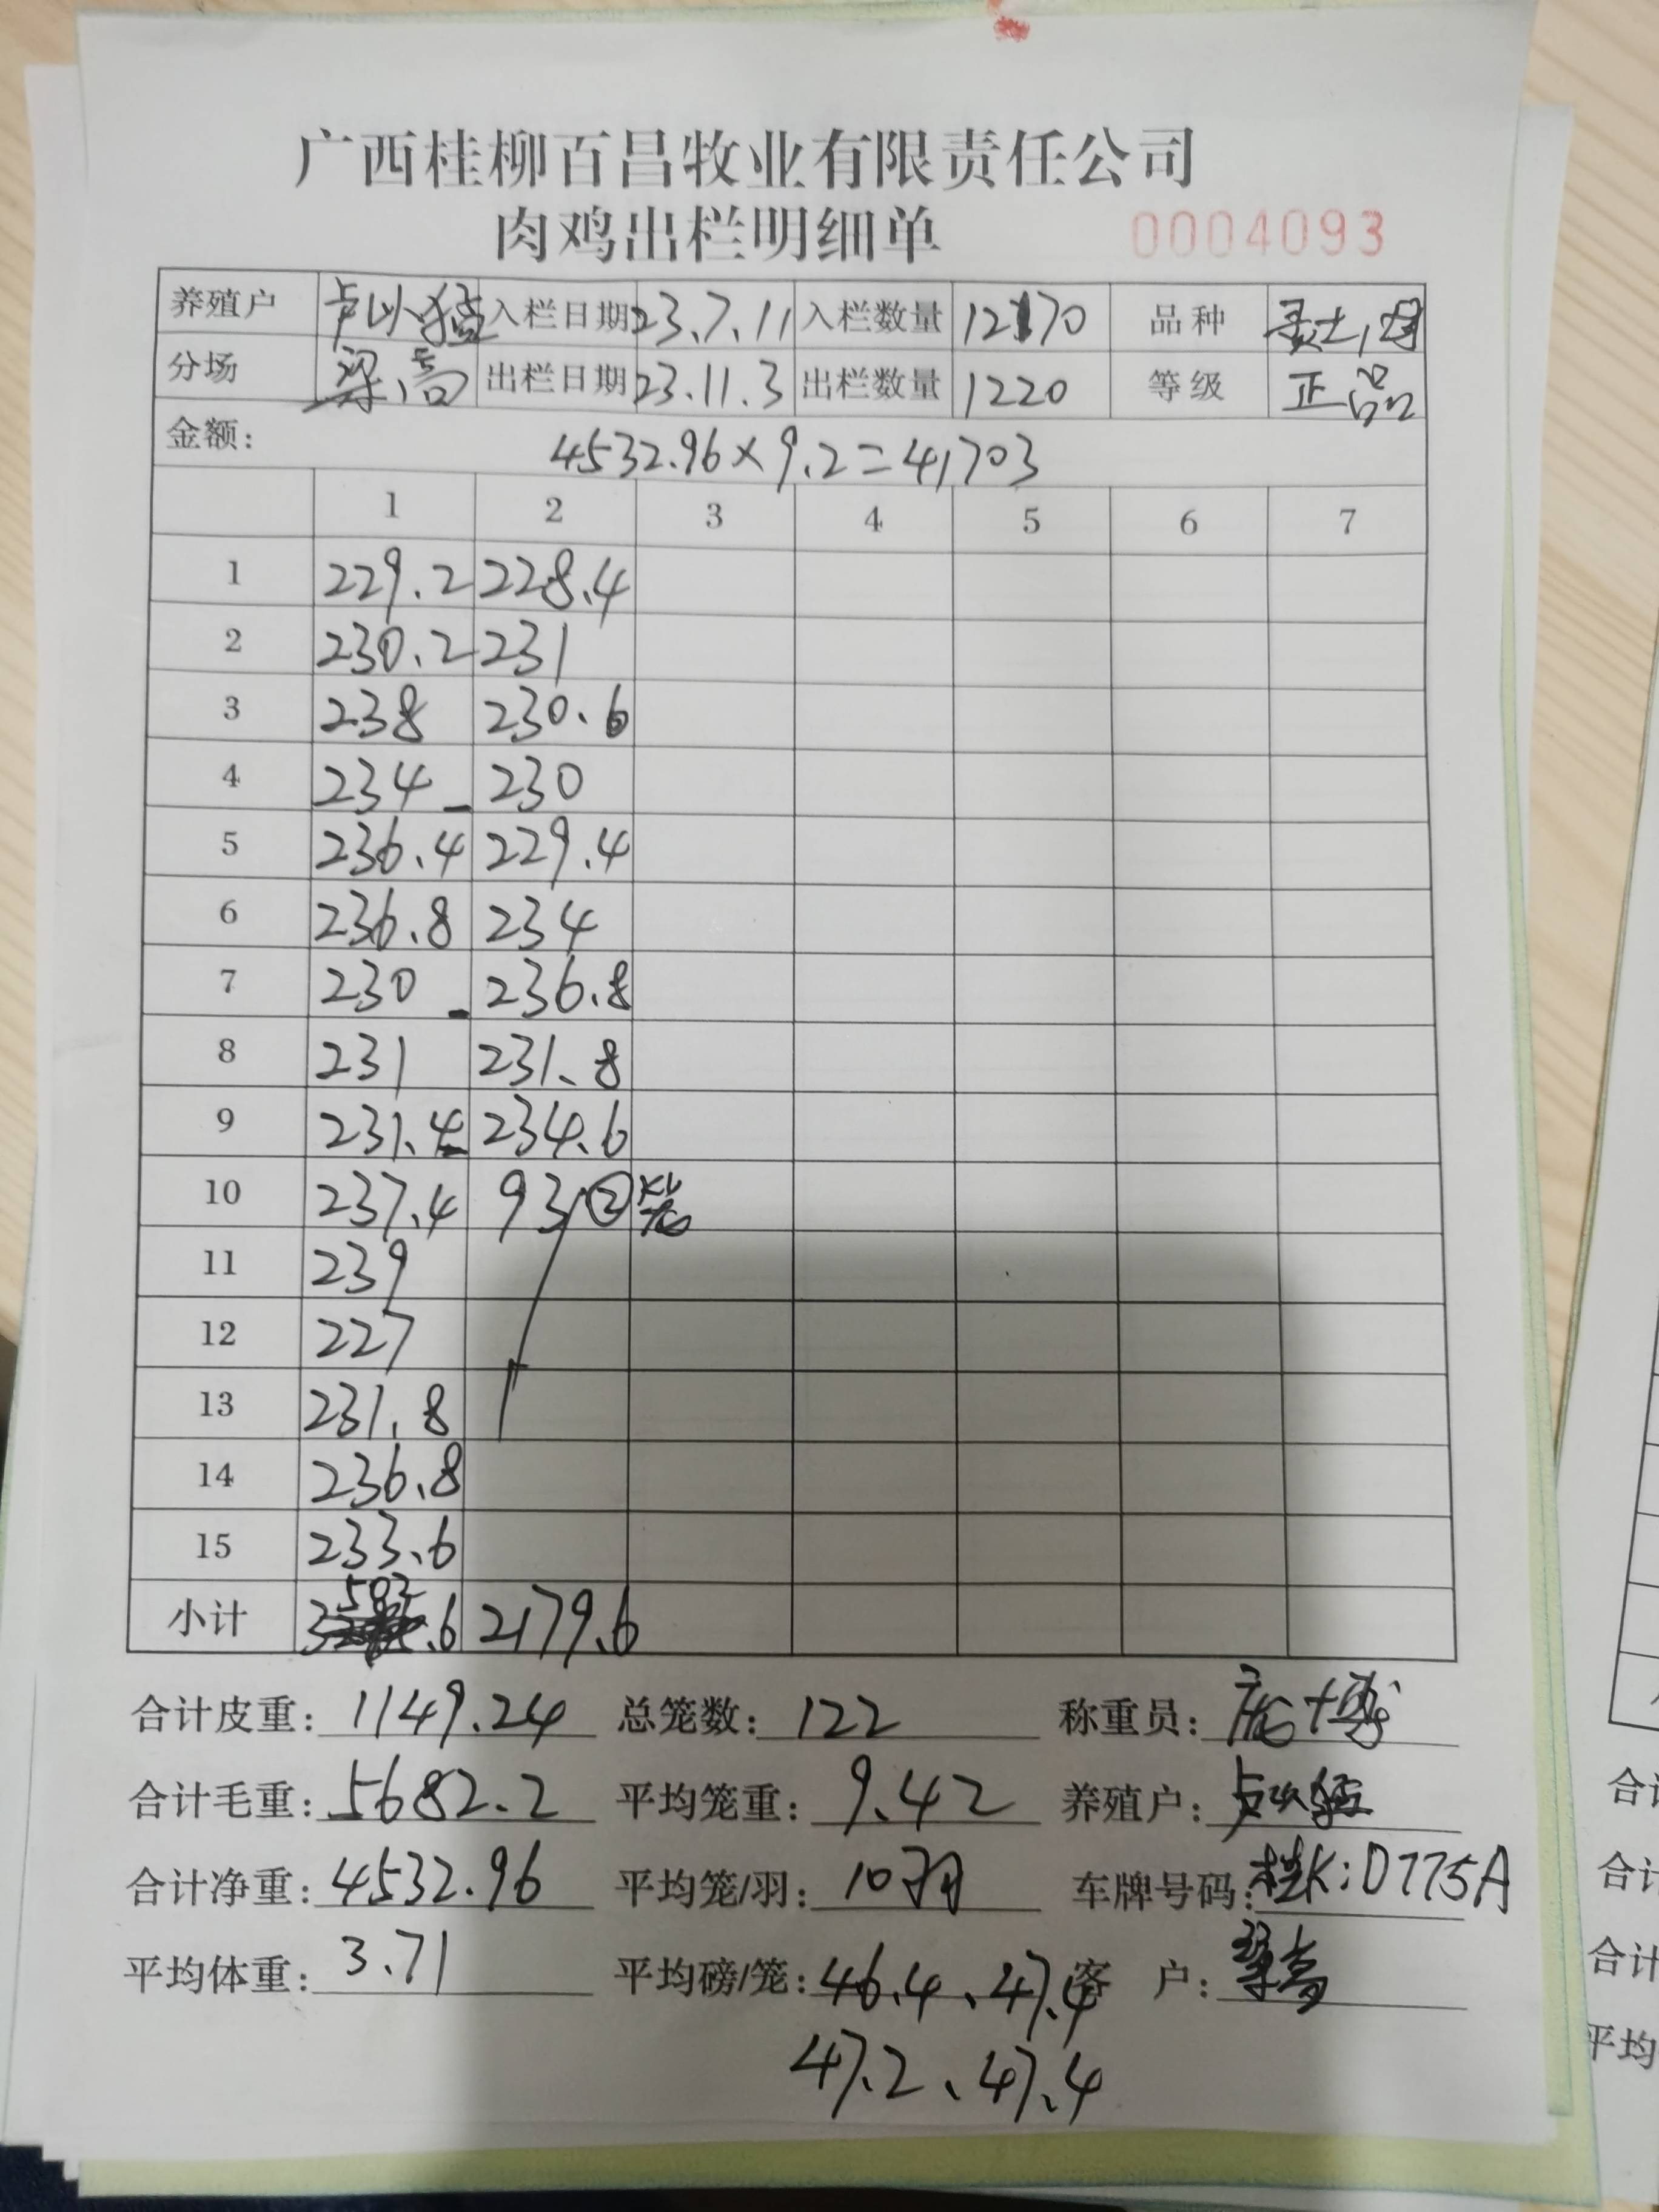 广西桂柳百昌牧业有限责任公司
肉鸡出栏明细单 0004093
养殖户 卢以猛 入栏日期 23.7.11 入栏数量 12170 品种
分场 梁高 出栏日期 23.11.3 出栏数量 1220 等级 正品
金额: 4532.96×9.2=41703
1 2 3 4 5 6 7
1 229.2 228.4
2 230.2 231
3 238 230.6
4 234 230
5 236.4 229.4
6 236.8 234
7 230 236.8
8 231 231.8
9 231.4 234.6
10 237.4 93 ②笼
11 239
12 227
13 231.8
14 236.8
15 233.6
小计 3502.6 2179.6
合计皮重: 1149.24 总笼数: 122 称重员:
合计毛重: 5682.2 平均笼重: 9.42 养殖户:
合计净重: 4532.96 平均笼/羽: 10羽 车牌号码: 桂K:D775A
平均体重: 3.71 平均磅/笼: 46.4、47.4 客 户: 梁高
47.2、47.4
合计
合计
合计
平均